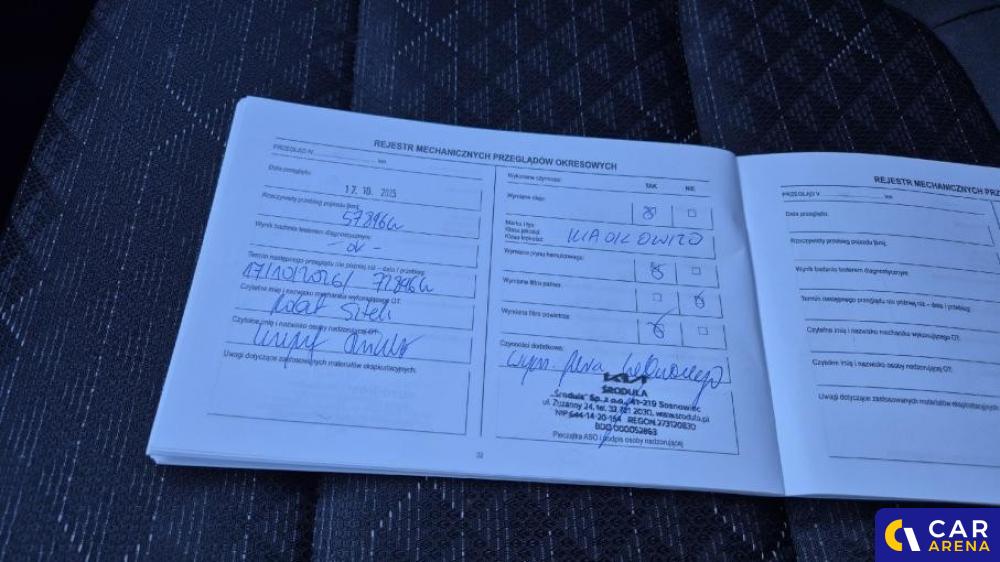 REJESTR MECHANICZNYCH PRZEGLĄDÓW OKRESOWYCH
PRZEGLĄD V km
Data przeglądu:
17. 10. 2025
Rzeczywisty przebieg pojazdu [km]:
57896
Wynik badania testerem diagnostycznym:
- OK -
Termin następnego przeglądu nie później niż – data i przebieg:
17/10/2026/ 72896
Czytelne imię i nazwisko mechanika wykonującego OT:
Czytelne imię i nazwisko osoby nadzorującej OT:
Uwagi dotyczące zastosowanych materiałów eksploatacyjnych:
32
Wykonane czynności:
TAK NIE
Wymiana oleju:
Marka i typ:
Klasa jakości:
Klasa lepkości:
Wymiana płynu hamulcowego:
Wymiana filtra paliwa:
Wymiana filtra powietrza:
Czynności dodatkowe:
wym.
KIA
ŚRODULA
„Środula" Sp. z o.o., 41-219 Sosnowiec
ul. Zuzanny 24, tel. 32 721 2030, www.srodula.pl
NIP 644-14-20-154 REGON 273120830
BDO 000052863
Pieczątka ASO i podpis osoby nadzorującej
REJESTR MECHANICZNYCH
PRZEGLĄD V km
Data przeglądu:
Rzeczywisty przebieg pojazdu [km]:
Wynik badania testerem diagnostycznym:
Termin następnego przeglądu nie później niż – data i przebieg:
Czytelne imię i nazwisko mechanika wykonującego OT:
Czytelne imię i nazwisko osoby nadzorującej OT:
Uwagi dotyczące zastosowanych materiałów eksploatacyjnych:
CAR
ARENA